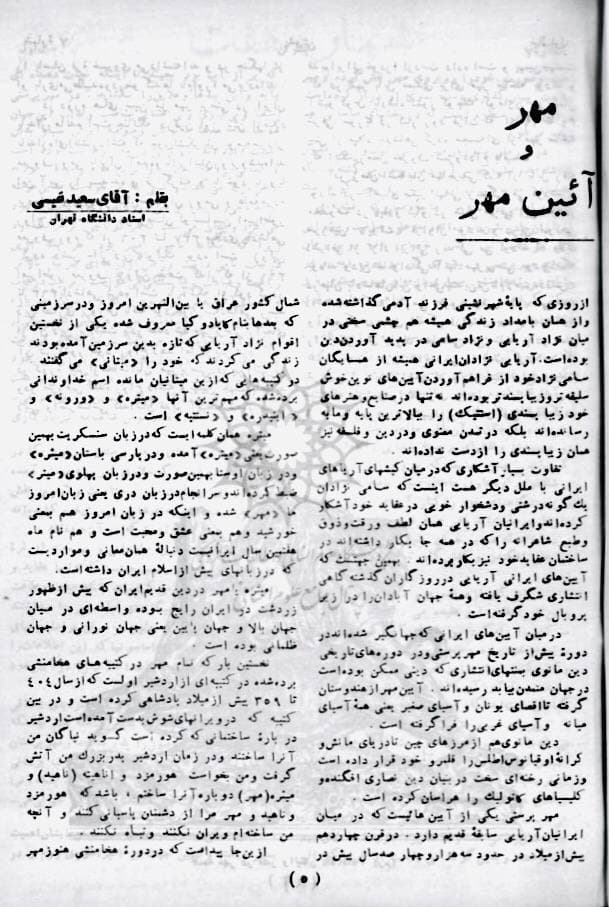 مهر
و
آئین مهر
بقلم : آقای سعید نفیسی
استاد دانشگاه تهران
ازروزی که پایهٔ شهرنشینی فرزند آدمی گذاشته شده
و از همان بامداد زندگی همیشه هم چشمی سختی در
میان نژاد آریایی و نژاد سامی در پدید آوردن دین
بوده است. آریایی نژادان ایرانی همیشه از همسایگان
سامی نژاد خود از فراهم آوردن آیین‌های نوین خوش
سلیقه‌تر و زیبا پسندتر بوده‌اند. نه تنها در صنایع و هنرهای
خود زیبا پسندی (استتیك) را ببالاترین پایه و مایه
رسانده‌اند بلکه در تمدن معنوی و در دین و فلسفه نیز
همان زیبا پسندی را ازدست نداده‌اند.
تفاوت بسیار آشکاری که در میان کیشهای آریاهای
ایرانی با ملل دیگر هست اینست که سامی نژادان
یك گونه درشتی و دشخوار خویی در عقاید خود آشکار
کرده‌اند و ایرانیان آریایی همان لطف و رقت و ذوق
و طبع شاعرانه را که در همه جا بکار داشته‌اند در
ساختمان عقاید خود نیز بکار برده‌اند . بهمین جهتست که
آیین‌های ایرانی آریایی در روزگاران گذشته گاهی
انتشاری شگرف یافته و همهٔ جهان آبادان را در زیر
پر و بال خود گرفته است .
در میان آیین‌های ایرانی که جهانگیر شده‌اند در
دورهٔ پیش از تاریخ مهر پرستی و در دوره‌های تاریخی
دین مانوی بمنتهای انتشاری که دینی ممکن بوده است
در جهان متمدن بیابد رسیده‌اند . آیین مهر از هندوستان
گرفته تا اقصای یونان و آسیای صغیر یعنی همهٔ آسیای
میانه و آسیای غربی را فرا گرفته است .
دین مانوی هم از مرزهای چین تا دریای مانش و
کرانهٔ اوقیانوس اطلس را قلمرو خود قرار داده است
و زمانی رخنه‌ای سخت در بنیان دین نصاری افگنده و
کلیساهای کاتولیك را هراسان کرده است .
مهر پرستی یکی از آیین هائیست که در میان
ایرانیان آریایی سابقهٔ قدیم دارد . در قرن چهاردهم
پیش از میلاد در حدود سه هزار و چهار صد سال پیش در
شمال کشور عراق یا بین‌النهرین امروز و در سرزمینی
که بعدها بنام کاپادوکیا معروف شده یکی از نخستین
اقوام نژاد آریایی که تازه بدین سرزمین آمده بودند
زندگی می‌کردند که خود را «میتانی» می‌گفتند
در کتیبه‌هایی که ازین میتانیان مانده اسم خداوندانی
برده شده که مهم‌ترین آنها «میثره» و «ورونه» و
«ایندره» و «نستیه» است .
میثره همان کلمه‌ایست که در زبان سنسکریت بهمین
صورت یعنی «میثره» آمده و در پارسی باستان «میثره»
و در زبان اوستا بهمین صورت و در زبان پهلوی «میتر»
ضبط کرده‌اند و سرانجام در زبان دری یعنی زبان امروز
ما «مهر» شده و اینکه در زبان امروز هم بمعنی
خورشید و هم بمعنی عشق و محبت است و هم نام ماه
هفتمین سال ایرانیست دنبالهٔ همان معانی و مواردیست
که در زبانهای پیش از اسلام ایران داشته است.
میثره یا مهر در دین قدیم ایران که پیش از ظهور
زردشت در ایران رایج بوده واسطه‌ای در میان
جهان بالا و جهان پایین یعنی جهان نورانی و جهان
ظلمانی بوده است .
نخستین بار که نام مهر در کتیبه‌های هخامنشی
برده شده در کتیبه‌ای از اردشیر اولست که از سال ۴۰٤
تا ۳۵۹ پیش از میلاد پادشاهی کرده است و در بین
کتیبه که در ویرانهای شوش بدست آمده است اردشیر
در بارهٔ ساختمانی که کرده است گوید نیاگان من
آنرا ساختند و در زمان اردشیر پدر بزرك من آتش
گرفت و من بخواست هورمزد و اناهیته (ناهید) و
میثره (مهر) دوباره آنرا ساختم ، باشد که هورمزد
و ناهید و مهر مرا از دشمنان پاسبانی کنند و آنچه
من ساخته‌ام ویران نکنند و تباه نکنند .
ازین جا پیداست که در دورهٔ هخامنشی هنوز مهر
(٥)